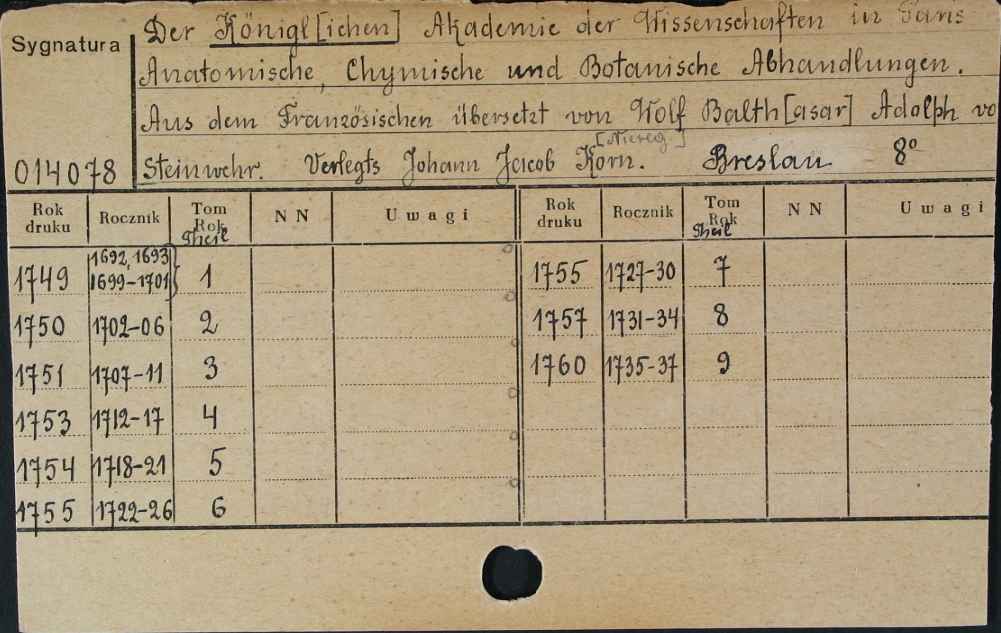 Sygnatura
Der Königl[ichen] Akademie der Wissenschaften in Paris
Anatomische, Chymische und Botanische Abhandlungen.
Aus dem Französischen übersetzt von Wolf Balth[asar] Adolph vo
014078 Steinwehr. Verlegts Johann Jacob Korn. Breslau 8°
Rok druku Rocznik Tom Rok Theil NN Uwagi Rok druku Rocznik Tom Rok Theil NN Uwagi
1749 1692, 1693 1699-1701 } 1 1755 1727-30 7
1750 1702-06 2 1757 1731-34 8
1751 1707-11 3 1760 1735-37 9
1753 1712-17 4
1754 1718-21 5
1755 1722-26 6